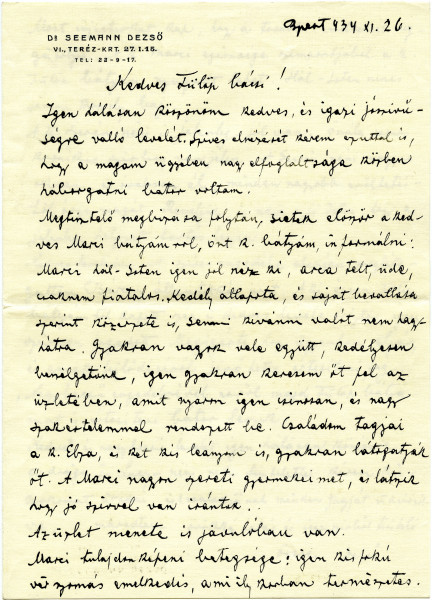 Dr SEEMANN DEZSŐ
VI., TERÉZ-KRT. 27. I. 15.
TEL: 22-9-17.
Bpest 934 XI. 26.
Kedves Fülöp bácsi!
Igen hálásan köszönöm kedves, és igazi jószivü-
ségre valló levelét. Szives elnézését kérem ezuttal is,
hogy a magam ügyében nagy elfoglaltsága közben
háborgatni bátor voltam.
Megtisztelő megbizása folytán, sietek először a ked-
ves Marci bátyámról, önt k. bátyám, informálni:
Marci hál-Isten igen jól néz ki, arca telt, üde,
csaknem fiatalos. Kedély állapota, és saját bevallása
szerint közérzete is, semmi kivánni valót nem hagy
hátra. Gyakran vagyok vele együtt, kedélyesen
beszélgetünk, igen gyakran keresem őt fel az
üzletében, amit nyáron igen csinosan, és nagy
szakértelemmel rendezett be. Családom tagjai
a k. Elza, és két kis leányom is, gyakran látogatják
őt. A Marci nagyon szereti gyermekeimet, és látszik
hogy jó szivvel van irántuk..
Az üzlet menete is javulóban van.
Marci tulajdonképeni betegsége: igen kis fokú
vérnyomás emelkedés, ami ily korban természetes.